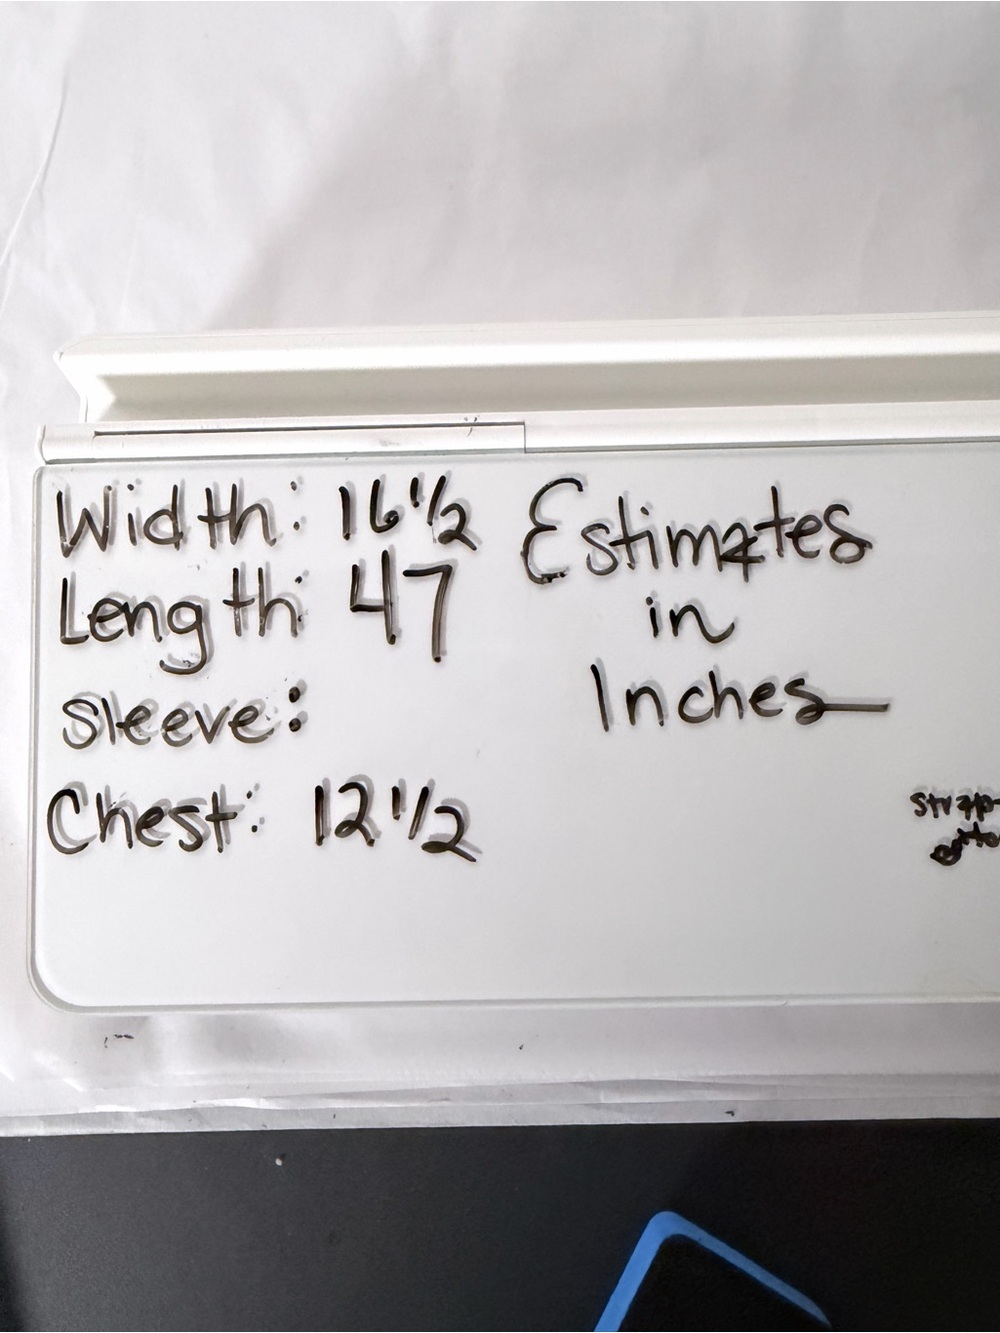 Width: 16 1/2
Length: 47
Sleeve:
Chest: 12 1/2
Estimates
in
Inches